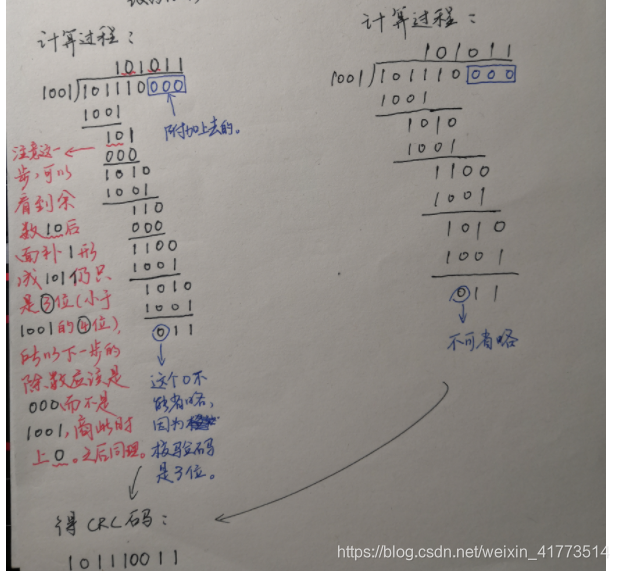 计算过程：
101011
1001)101110000
1001
101
000
1010
1001
110
000
1100
1001
1010
1001
011
附加上去的。
注意这一
步，可以
看到余
数10后
面补1形
成101仍只
是③位(小于
1001的④位)，
所以下一步的
除数应该是
000而不是
1001，商此时
上0。之后同理。
这个0不
能省略，
因为
校验码
是3位。
计算过程：
101011
1001)101110000
1001
1010
1001
1100
1001
1010
1001
011
不可省略
得CRC码：
101110011
https://blog.csdn.net/weixin_41773514